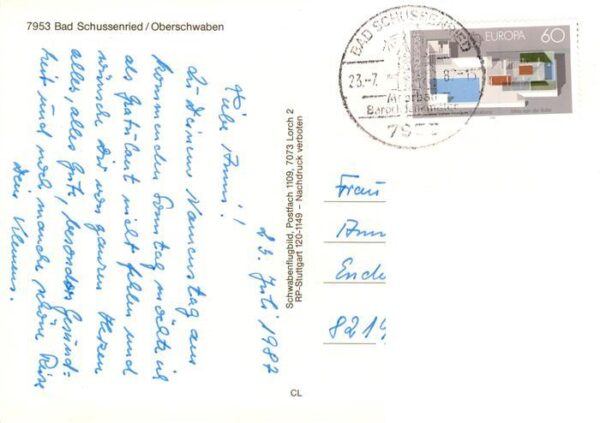 7953 Bad Schussenried/Oberschwaben
23. Juli 1987
Liebe Anni!
Zu Deinem Namenstag am
kommenden Sonntag möchte ich
als Gratulant nicht fehlen und
wünsche Dir von ganzem Herzen
alles, alles Gute, besonders Gesund-
heit und noch manche schöne Reise
Dein Klemens.
Schwabenflugbild, Postfach 1109, 7073 Lorch 2
RP-Stuttgart 120-1149 – Nachdruck verboten
CL
BAD SCHUSSENRIED
23.-7.
EUROPA 60
Frau
Ende
821